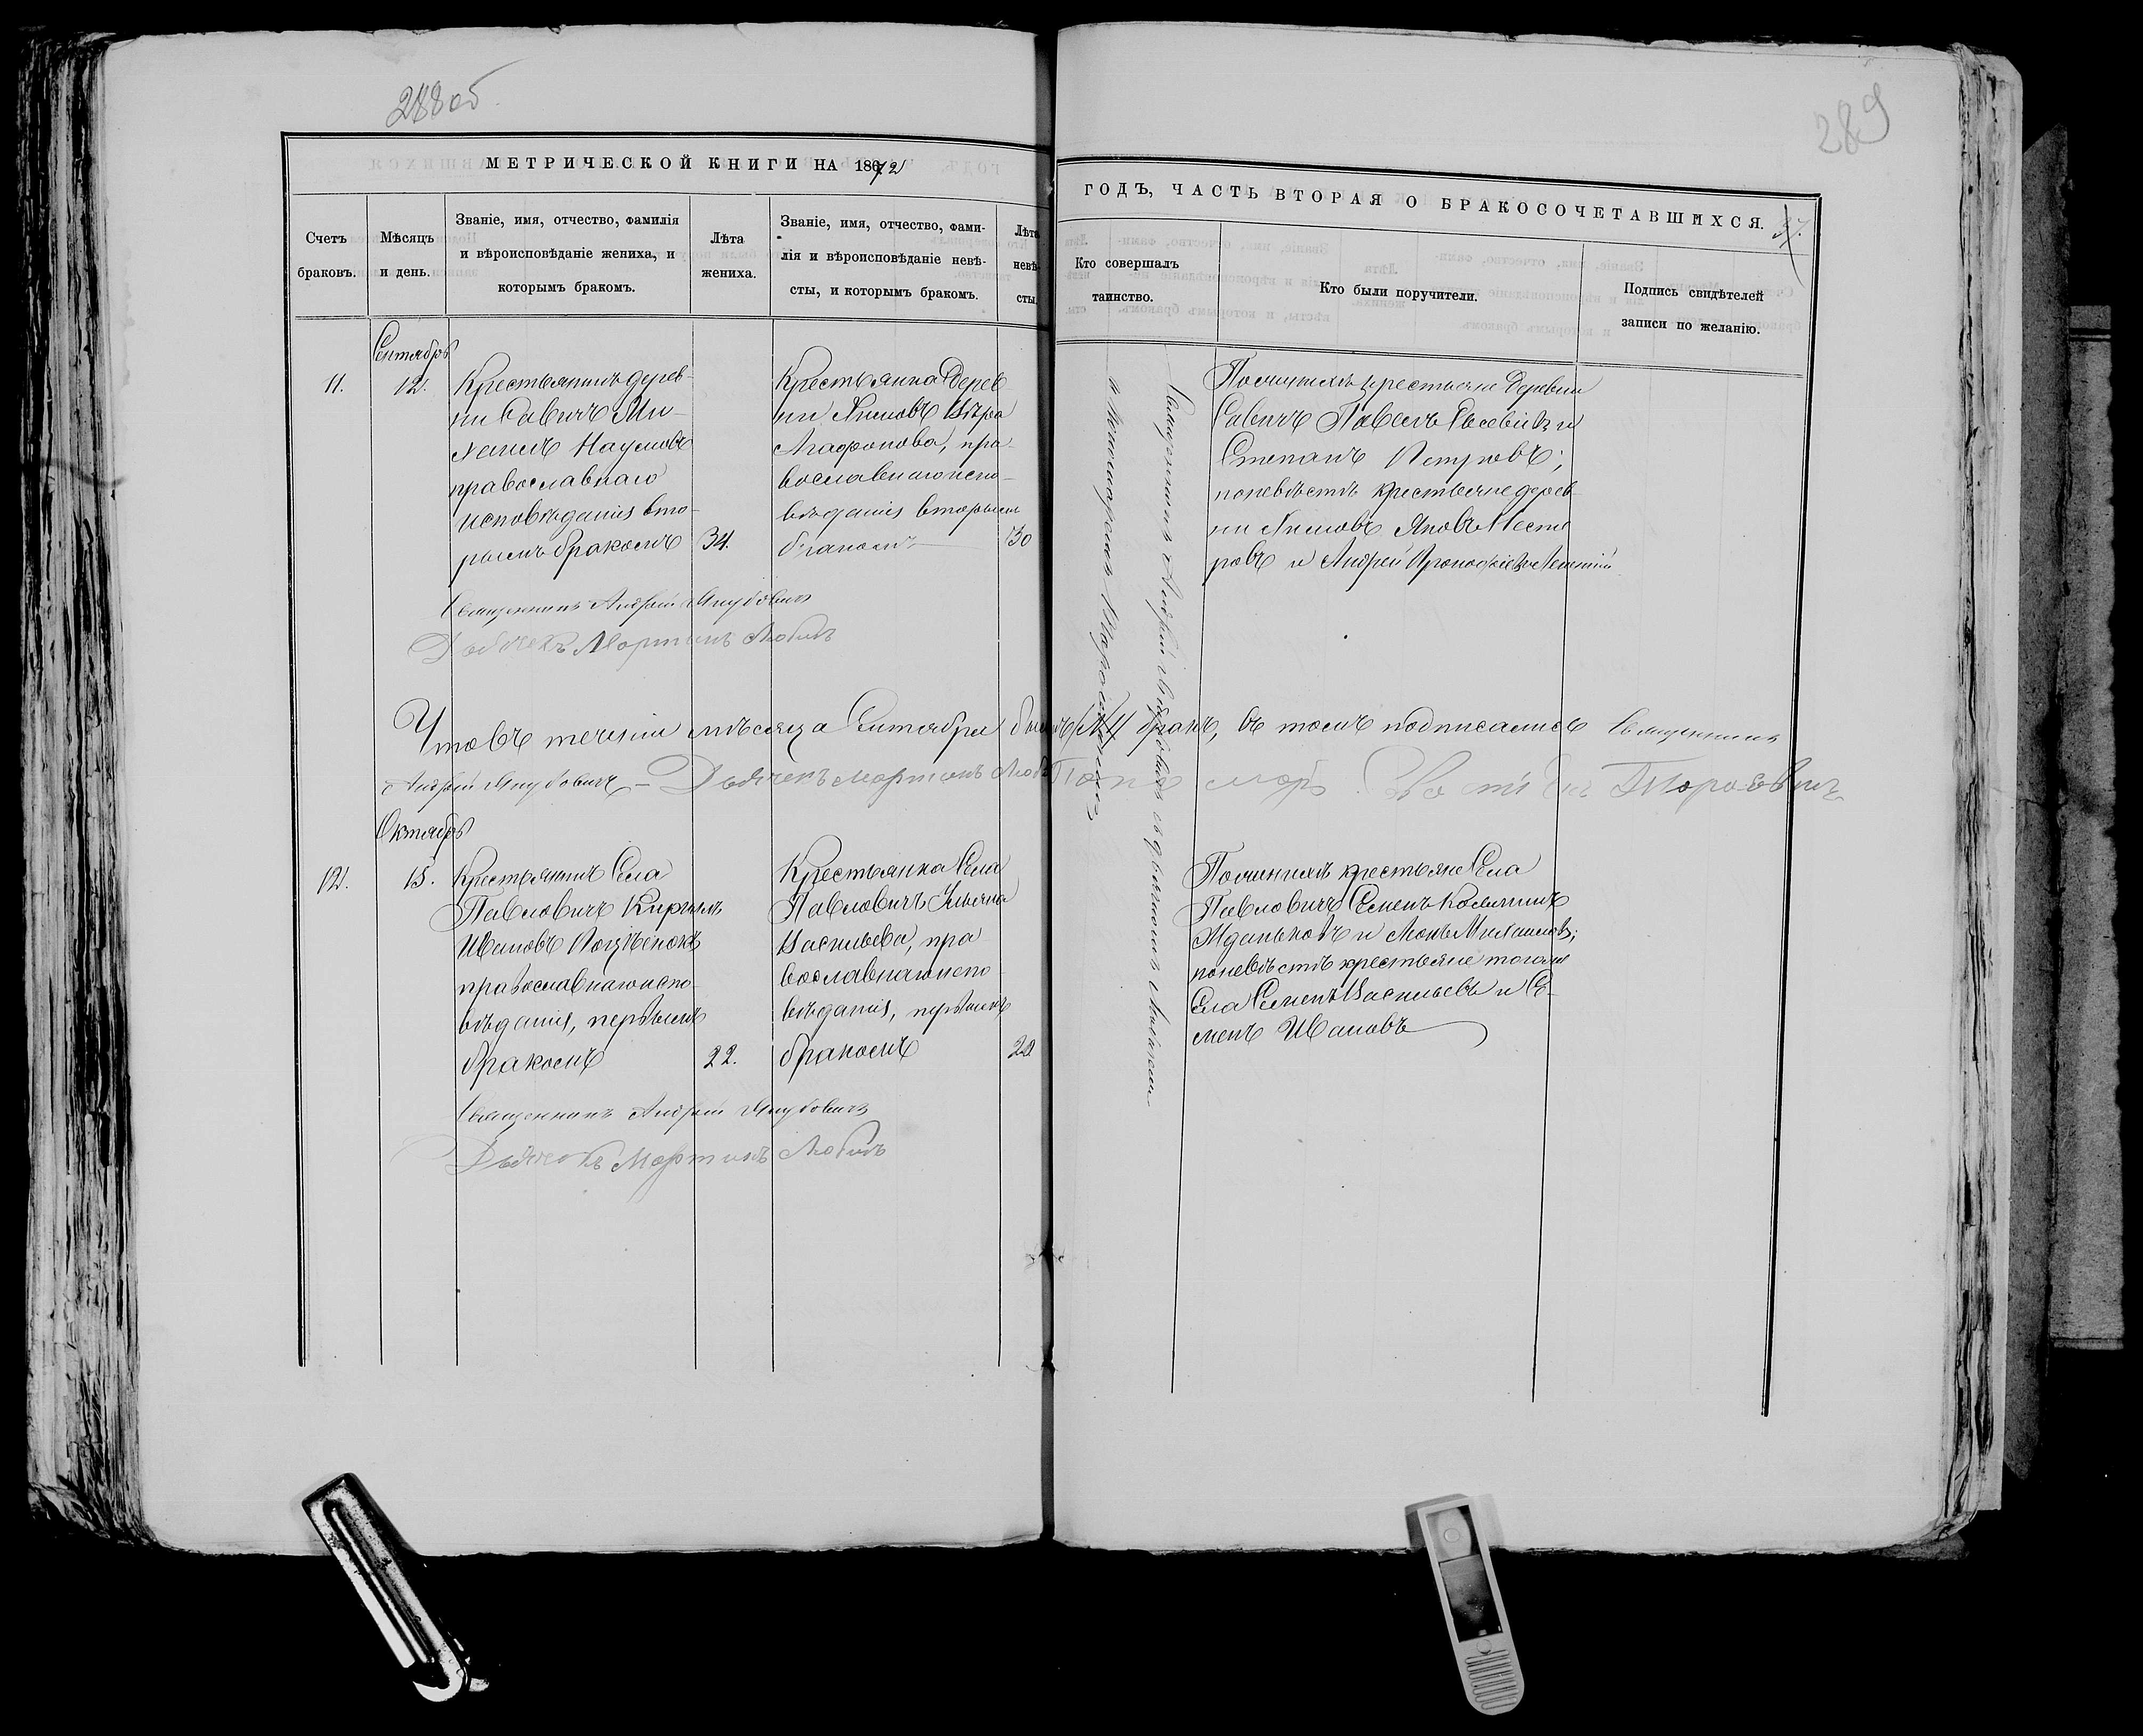 288 об
289
МЕТРИЧЕСКОЙ КНИГИ НА 1872
ГОДЪ, ЧАСТЬ ВТОРАЯ О БРАКОСОЧЕТАВШИХСЯ.
37.
Счетъ
браковъ.
Мѣсяцъ
и день.
Званіе, имя, отчество, фамилія
и вѣроисповѣданіе жениха, и
которымъ бракомъ.
Лѣта
жениха.
Званіе, имя, отчество, фами-
лія и вѣроисповѣданіе невѣ-
сты, и которымъ бракомъ.
Лѣта
невѣ-
сты.
Кто совершалъ
таинство.
Кто были поручители.
Подпись свидѣтелей
записи по желанію.
Сентябрь
11.
12.
Крестьянинъ дерев-
ни Савичъ Ми-
хаилъ Наумовъ
православнаго
исповѣданія вто-
рымъ бракомъ
34.
Крестьянка дерев-
ни Вѣра
Агафонова, пра-
вославнаго испо-
вѣданія вторымъ
бракомъ
30
По женихѣ крестьяне деревни
Савичъ Павелъ и
Степанъ Петровъ;
по невѣстѣ крестьяне дерев-
ни Яковъ Несте
ровъ и Андрей
Священникъ Андрей Якубовичъ
Дьячекъ Мартинъ
Священникъ Андрей Якубовичъ съ дьячкомъ
и пономаремъ
Что въ теченіи мѣсяца Сентября бракъ, въ томъ подписались Священникъ
Андрей Якубовичъ – Дьячекъ Мартинъ
Октябрь
12.
15.
Крестьянинъ Села
Павловичъ Кирилъ
Ивановъ
православнаго испо-
вѣданія, первымъ
бракомъ
22.
Крестьянка Села
Павловичъ Ульяна
Васильева, пра
вославнаго испо-
вѣданія, первымъ
бракомъ
20
По женихѣ крестьяне Села
Павловичъ Семенъ
Жданъковъ и Михайловъ;
по невѣстѣ крестьяне того же
Села Семенъ Васильевъ и Се-
менъ Ивановъ
Священникъ Андрей Якубовичъ
Дьячекъ Мартинъ